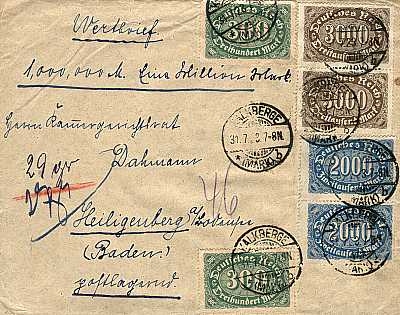 Wertbrief
1,000,000 M. Eine Million Mark.
Herrn Kammergerichtsrat
Dahmann
Heiligenberg
(Baden)
postlagernd.
29 gr
46
Deutsches Reich
300
Dreihundert Mark
Deutsches Reich
3000
Dreitausend Mark
Deutsches Reich
3000
Dreitausend Mark
Deutsches Reich
2000
Zweitausend Mark
Deutsches Reich
2000
Zweitausend Mark
Deutsches Reich
300
Dreihundert Mark
KALKBERGE
31.7.23.7-8N.
* (MARK) *
KALKBERGE
(MARK)